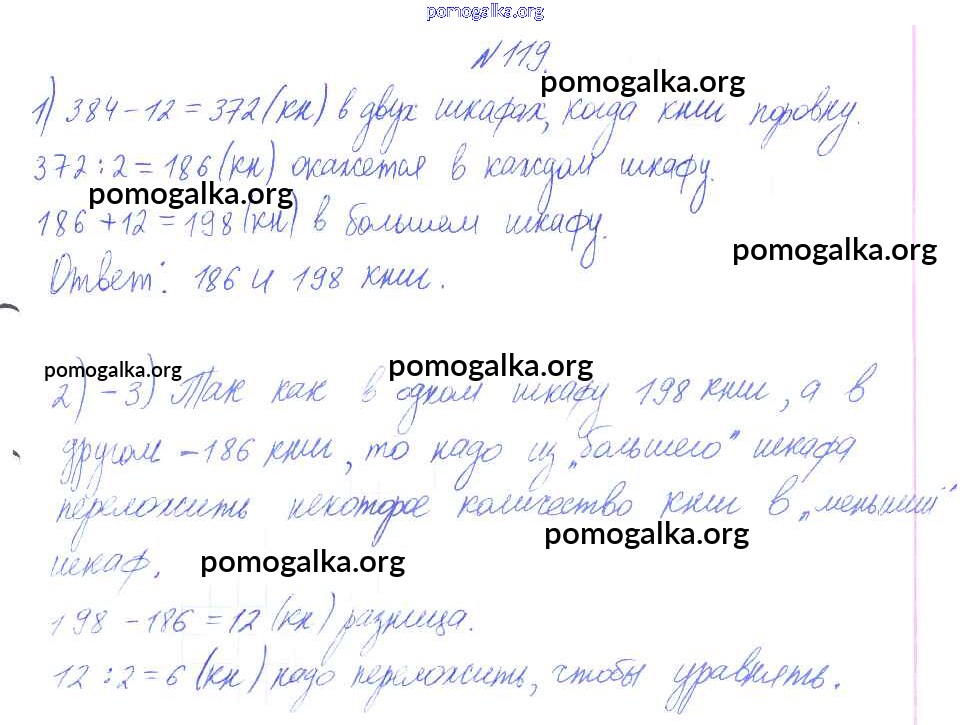 pomogalka.org
№119.
pomogalka.org
1) 384-12=372(кн) в двух шкафах, когда книг поровну.
372:2=186(кн) окажется в каждом шкафу.
pomogalka.org
186+12=198(кн) в большем шкафу.
pomogalka.org
Ответ: 186 и 198 книг.
pomogalka.org
pomogalka.org
2)-3) Так как в одном шкафу 198 книг, а в
другом -186 книг, то надо из „большего" шкафа
переложить некоторое количество книг в „меньший"
pomogalka.org
шкаф.
pomogalka.org
198-186=12(кн) разница.
12:2=6(кн) надо переложить, чтобы уравнять.